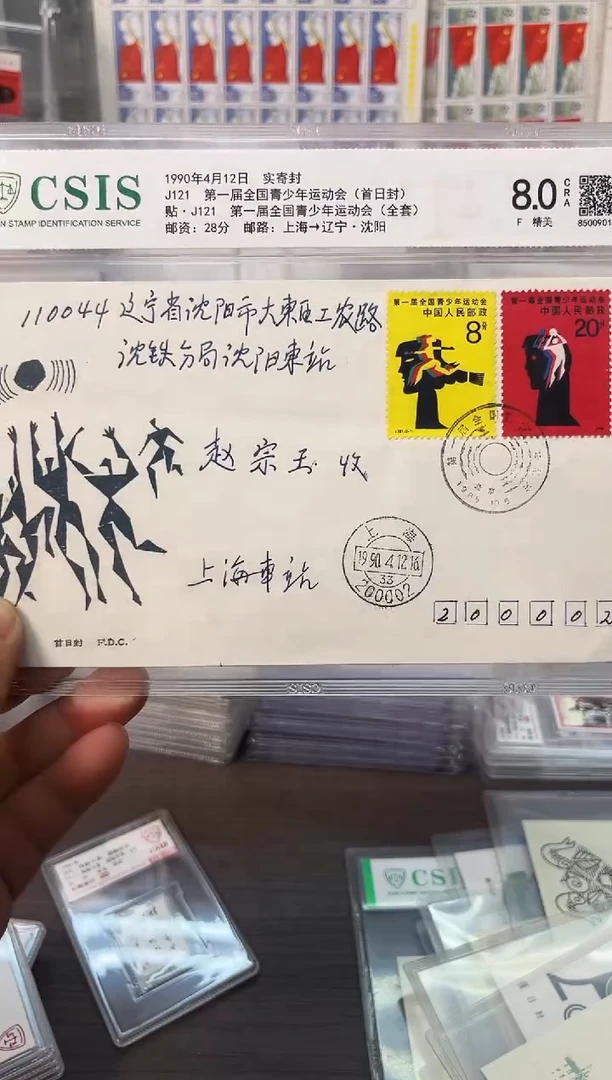 CSIS
N STAMP IDENTIFICATION SERVICE
1990年4月12日 实寄封
J121 第一届全国青少年运动会（首日封）
贴·J121 第一届全国青少年运动会（全套）
邮资：28分 邮路：上海→辽宁·沈阳
8.0
CRA
F 精美
8500901
110044 辽宁省沈阳市大東区工农路
沈铁分局沈阳東站
赵宗玉 收
上海車站
第一届全国青少年运动会
中国人民邮政
8分
第一届全国青少年运动会
中国人民邮政
20分
上海
1990.4.12.16
33
200002
200002
首日封 F.D.C.
CSIS
CSI